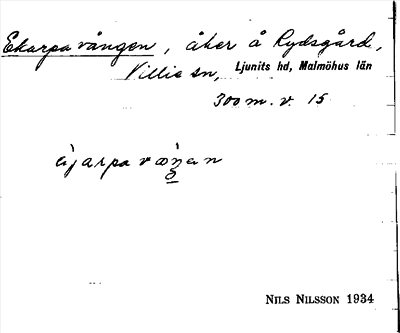 Ekarpavången, åker å Rydsgård,
Villie sn, Ljunits hd, Malmöhus län
300 m. v. 15.
NILS NILSSON 1934